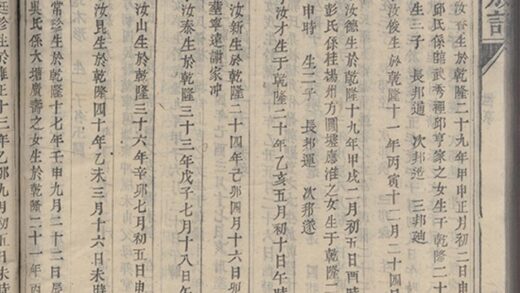 生於乾隆二十九年甲申正月初二日申
邱氏係武秀經邱亨家之女生于乾隆二十
生三子 長邦道 次邦造 三邦
汝俊生於乾隆十一年丙寅十二月二十四
汝德生於乾隆十九年甲戌二月初五日酉時
彭氏係桂揚州方圓壚應淮之女生于乾隆二
申時 生二子 長邦運 次邦遂
汝才生于乾隆二十年乙亥五月初十日午時
汝新生於乾隆二十四年己卯四月十六日
寧遠譚家冲
汝山生於乾隆三十六年辛卯七月初五日申
汝泰生於乾隆三十三年戊子七月十八日午
汝昆生於乾隆四十年乙未三月十六日未時
常珍生於乾隆十七年壬申九月二十二日
吳氏係大壚廣壽之女生於乾隆二十一年丙
珍生於雍正十三年乙卯九月初五日未時